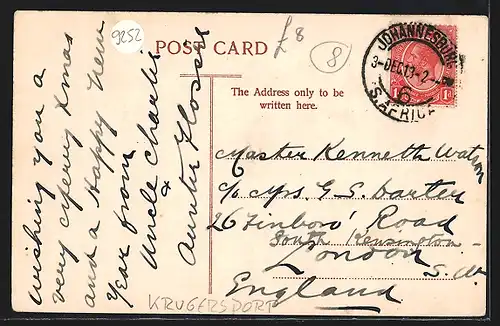 9252
POST CARD
£8
8
JOHANNESBURG
3-DEC 13-2-
6
S. AFRICA
1d
The Address only to be
written here.
wishing you a
very Merry Xmas
and a Happy New
Year from
Uncle Charlie
&
Auntie Flossie
Master Kenneth Watson
c/o Mrs. G. S. Darter
26 Finboro' Road
South Kensington
London
S. W.
England
KRUGERSDORP